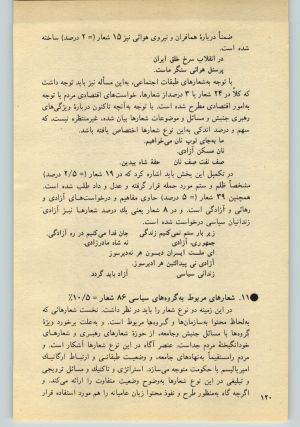 ضمناً دربارهٔ همافران و نیروی هوائی نیز ۱۵ شعار (= ۲ درصد) ساخته
شده است.
در انقلاب سرخ خلق ایران
پرسنل هوائی سنگر ماست.
با توجه به‌شعارهای طبقات اجتماعی، به‌این مسأله نیز باید توجه داشت
که کلاً در ۲۴ شعار یا ۳ درصداز شعارها، خواست‌های اقتصادی مردم با توجه
به‌امور اقتصادی مطرح شده است. با توجه به‌آنچه تاکنون دربارهٔ ویژگی‌های
رهبری جنبش و مسائل و موضوعات شعارها بیان شده، غیرمنتظره نیست، که
سهم و درصد اندکی به‌این نوع شعارها اختصاص یافته باشد.
ما به‌جای توپ نان می‌خواهیم.
نان مسکن آزادی.
صف نفت صف نان حقه شاه ببدین.
در تکمیل این بخش باید اشاره کرد که در ۱۹ شعار (= ۲/۵ درصد)
مشخصاً ظلم و ستم مورد حمله قرار گرفته و عدل و داد طلب شده است.
همچنین ۳۹ شعار (= ۵ درصد) حاوی مفاهیم و درخواست‌های آزادی و
رهائی و آزادگی است. و در ۸ شعار یعنی یك درصد شعارها نیز آزادی
زندانیان سیاسی درخواست شده است.
زیر بار ستم نمی‌کنیم زندگی جان فدا می‌کنیم در ره آزادگی.
جمهوری، آزادی نه شاه مادرزادی.
ای ملت ایسران دیسون هر نه‌دیرسوز
آزادی نی هر نه‌دیرسوز.
زندانی سیاسی آزاد باید گردد.
۱۱. شعارهای مربوط به‌گروه‌های سیاسی ۸۶ شعار = ۱۰/۵٪
در این زمینه دو نوع شعار را باید در نظر داشت. نخست شعارهائی که
به‌لحاظ محتوا به‌سازمان‌ها و گروه‌ها مربوط است. و به‌علت برخورد ویژهٔ
گروه‌ها با مسائل جنبش وجامعه، از حوزهٔ شعارهای رهبری و شعارهای
خودانگیختهٔ مردم جداست. عنصر آگاه در این نوع شعارها آشکار است. و
مردم را مستقیماً به‌نهادهای جامعه، و وضعیت طبقاتی و ارتباط ارگانیك
امپریالیسم با حکومت متوجه می‌سازد. استراتژی و تاکتیك و مسائل ترویجی
و تبلیغی در این نوع شعارها به‌وضوح وضعیت متفاوت را ارائه می‌کند. و
اگرچه گاه به‌منظور طرح و نفوذ محتوا زبان عامیانه را هم مورد استفاده قرار
۱۲۰